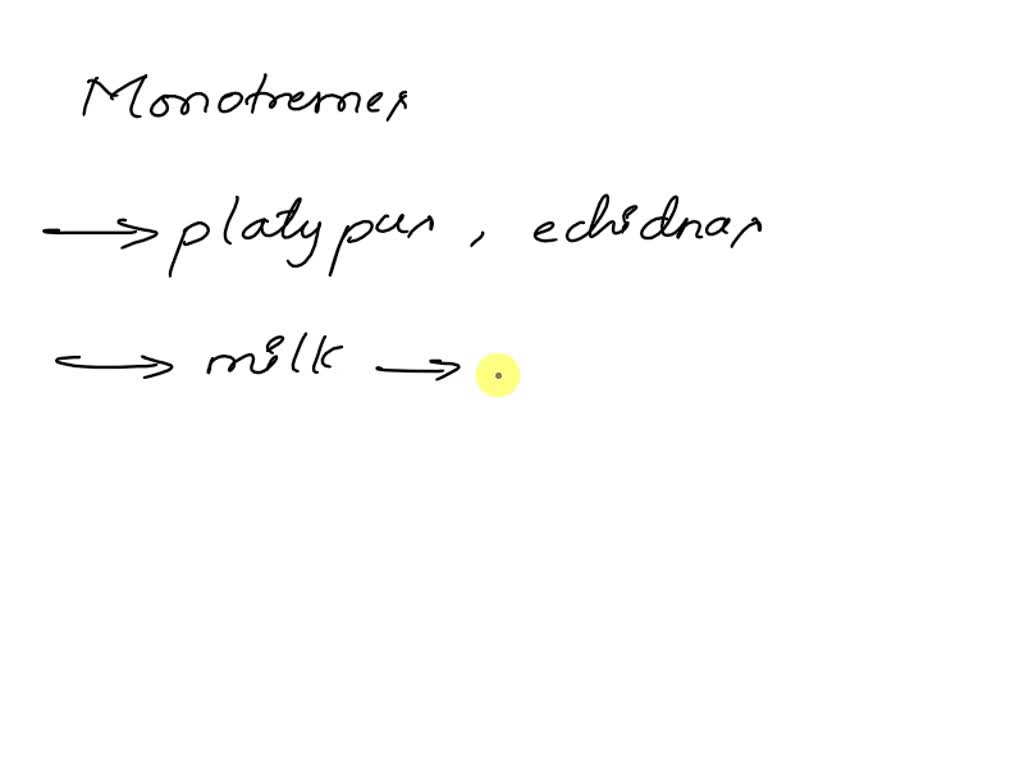 Monotremes
→ platypus , echidnas
↔ milk →